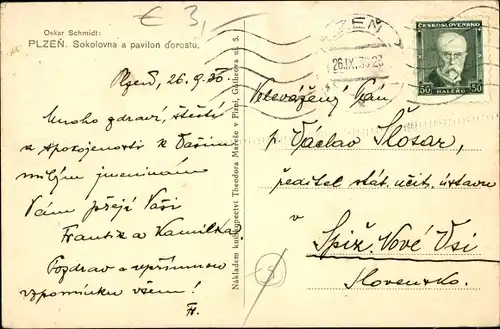 € 3,
Oskar Schmidt:
PLZEŇ. Sokolovna a pavilon dorostu.
PLZEŇ
26.IX.30
ČESKOSLOVENSKO
50 HALÉŘŮ 50
Plzeň, 26.9.30.
Mnoho zdraví, štěstí
a spokojenosti k Vašim
milým jmeninám
Vám přejí Vaši
Frantík a Kamilka
Pozdrav a upřímnou
vzpomínku všem!
Fr.
Nákladem knihkupectví Theodora Mareše v Plzni, Goetheova ul. 5.
Velevážený Pán
p. Václav Šlosar,
ředitel stát. učit. ústavu
v
Spiž. Nové Vsi
Slovensko.